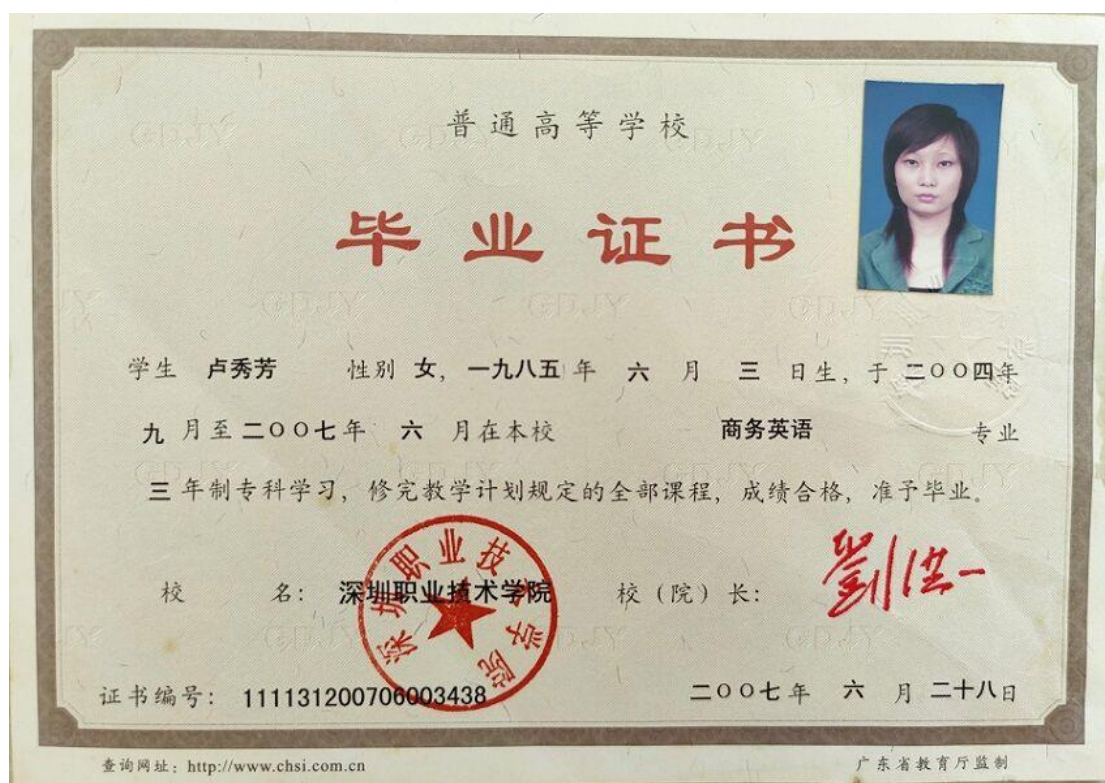 普通高等学校
毕业证书
学生 卢秀芳 性别 女，一九八五年 六 月 三 日生，于二〇〇四年
九 月至二〇〇七年 六 月在本校 商务英语 专业
三 年制专科学习，修完教学计划规定的全部课程，成绩合格，准予毕业。
校 名：深圳职业技术学院 校（院）长：劉洪一
深圳职业技术学院
证书编号：111131200706003438 二〇〇七年 六 月 二十八日
查询网址：http://www.chsi.com.cn 广东省教育厅监制
GDJY